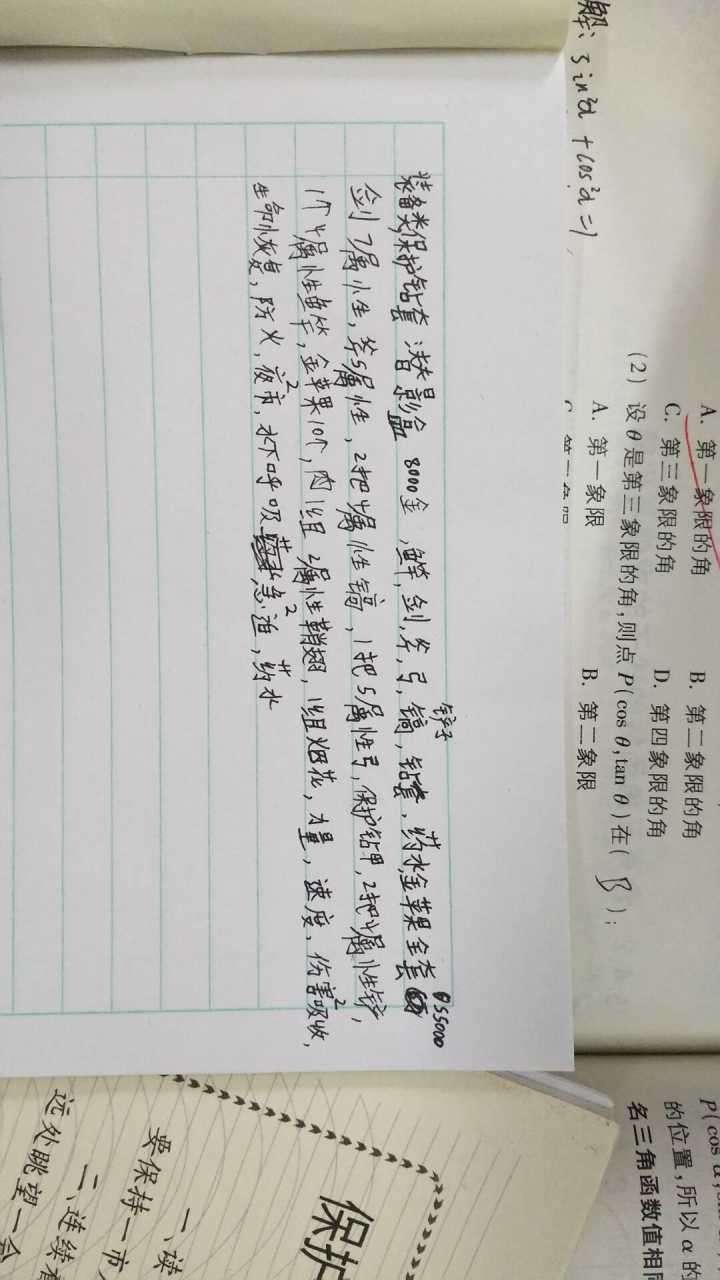 解: sin²α + cos²α = 1,
A. 第一象限的角 B. 第二象限的角
C. 第三象限的角 D. 第四象限的角
(2) 设θ是第三象限的角,则点P(cos θ,tan θ)在( B );
A. 第一象限 B. 第二象限
P(cos α,
的位置,所以α的
名三角函数值相同
锌子
装备类,保护钻套 潜影盒 8000金,鲜,剑,斧,弓,镐,钻套,药水,金苹果全套 55000
剑7属性,斧5属性,2把4属性镐,1把5属性弓,保护钻甲,2把4属性锌,
1个4属性鱼竿,金苹果10个,肉1组 2属性鞘翅,1组烟花,力量,速度,伤害吸收²,
生命恢复,防火,夜市²,水下呼吸 急迫²,药水
保护
一、读
要保持一市
二、连续看
远处眺望一会